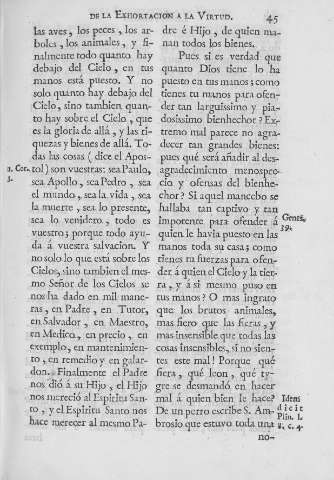 DE LA EXHORTACION A LA VIRTUD. 45
las aves, los peces, los ar-
boles, los animales, y fi-
nalmente todo quanto hay
debajo del Cielo, en tus
manos está puesto. Y no
solo quanto hay debajo del
Cielo, sino tambien quan-
to hay sobre el Cielo, que
es la gloria de allá, y las ri-
quezas y bienes de allá. To-
das las cosas (dice el Apos-
1. Cor. tol) son vuestras: sea Paulo,
3. sea Apolo, sea Pedro, sea
el mundo, sea la vida, sea
la muerte, sea lo presente,
sea lo venidero, todo es
vuestro; porque todo ayu-
da á vuestra salvacion. Y
no solo lo que está sobre los
Cielos, sino tambien el mes-
mo Señor de los Cielos se
nos ha dado en mil mane-
ras, en Padre, en Tutor,
en Salvador, en Maestro,
en Medico, en precio, en
exemplo, en mantenimien-
to, en remedio y en galar-
don. Finalmente el Padre
nos dió á su Hijo, el Hijo
nos mereció al Espiritu San-
to, y el Espiritu Santo nos
hace merecer al mesmo Pa-
dre é Hijo, de quien ma-
nan todos los bienes.
Pues si es verdad que
quanto Dios tiene lo ha
puesto en tus manos; como
tienes tu manos para ofen-
der tan larguissimo y pia-
dosissimo bienhechor? Ex-
tremo mal parece no agra-
decer tan grandes bienes:
pues qué será añadir al des-
agradecimiento menospre-
cio y ofensas del bienhe-
chor? Si aquel mancebo se
hallaba tan captivo y tan
impotente para ofender á Genes.
quien le havia puesto en las 39.
manos toda su casa; como
tienes tu fuerzas para ofen-
der á quien el Cielo y la tier-
ra, y á si mesmo puso en
tus manos? O mas ingrato
que los brutos animales,
mas fiero que las fieras, y
mas insensible que todas las
cosas insensibles, si no sien-
tes este mal! Porque qué
fiera, qué leon, qué ty-
gre se desmandó en hacer
mal á quien bien le hace? Idem
De un perro escribe S. Am- dicit
brosio que estuvo toda una Plin. l.
8. c. 4.
no-